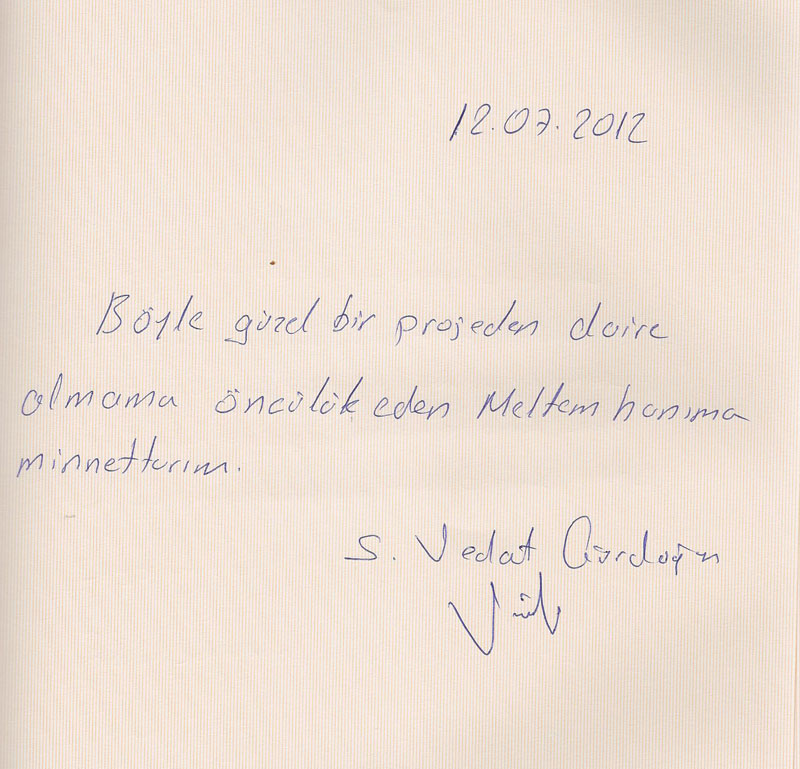 12.07.2012
Böyle güzel bir projeden daire
almama öncülük eden Meltem hanıma
minnettarım.
S. Vedat Gürdoğan